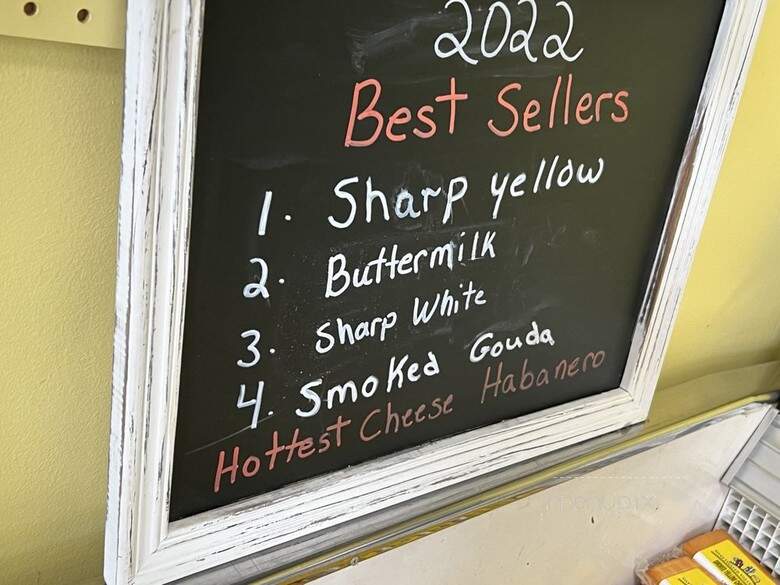 2022
Best Sellers
1. Sharp yellow
2. Buttermilk
3. Sharp White
4. Smoked Gouda
Hottest Cheese Habanero